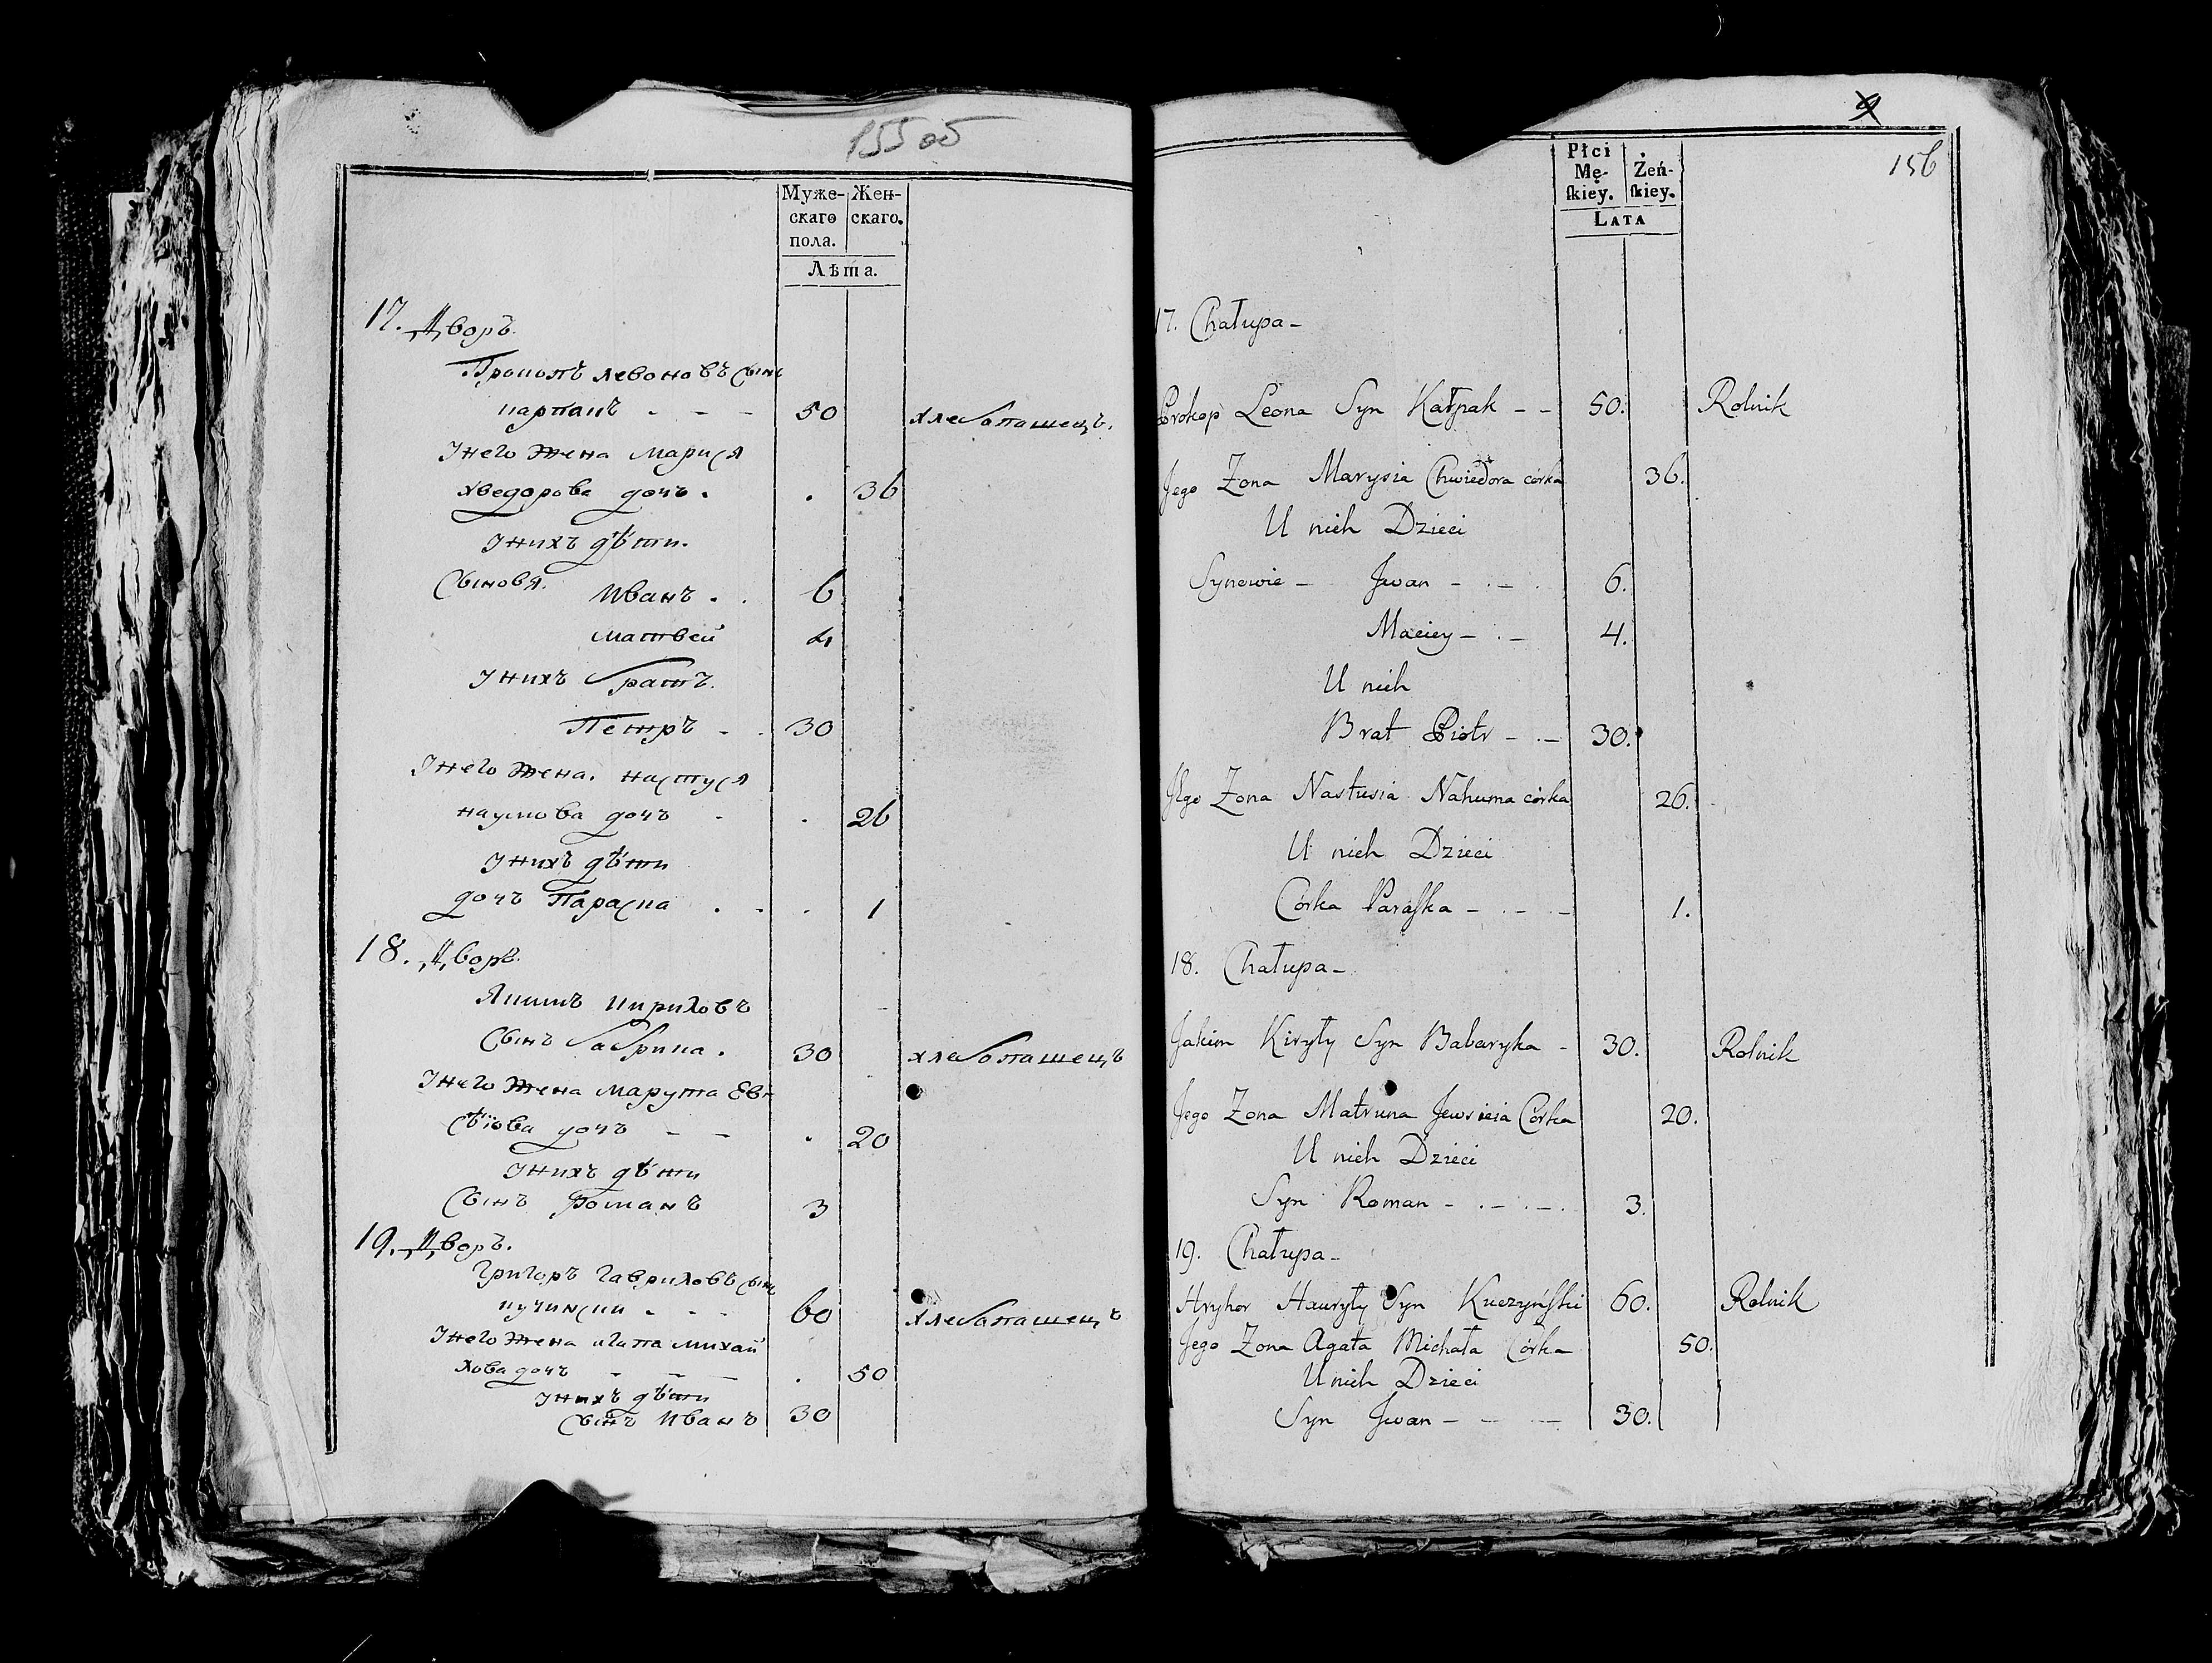 155 об
Муже-
скаго
пола.
Жен-
скаго.
Лѣта.
17. Дворъ.
Прокопъ левоновъ сынъ
карпакъ - - - 50 хлебопашецъ.
Унего жена марися
хведорова дочъ. . 36
Унихъ дѣти.
Сыновя. Иванъ . . 6
матвей 4
Унихъ братъ.
Петръ - . 30
Унего жена. настуся
наумова дочъ - . 26
Унихъ дѣти
дочъ Параска . - . 1
18. Дворъ.
Якимъ кириловъ
сынъ бабрика. 30 хлебопашецъ
Унего жена марута Ев-
сѣiова дочъ - - . 20
Унихъ дѣти
Сынъ Романъ 3
19. Дворъ.
григоръ гавриловъ сынъ
кучински . - - 60 хлебопашецъ
Унего жена агапа михай
лова дочъ - - - . 50
Унихъ дѣти
Сынъ Иванъ 30
9
156
Płci
Mę-
ſkiey.
Żeń-
ſkiey.
LATA
17. Chałupa -
Prokop Leona Syn Kałpak - - 50. Rolnik
Jego Zona Marysia Chwiedora córka 36.
U nich Dzieci
Synowie - Jwan - . - . 6.
Maciey - . - 4.
U nich
Brat Piotr - . - 30.
Jego Zona Nastusia Nahuma córka 26.
U nich Dzieci
Córka Paraſka - . - - 1.
18. Chałupa -
Jakim Kiryły Syn Babaryka - 30. Rolnik
Jego Zona Matruna Jewsieia Córka 20.
U nich Dzieci
Syn Roman - . - . - . 3.
19. Chałupa -
Hryhor Hauryły Syn Kuczyńſki 60. Rolnik
Jego Zona Agata Michała Córka 50.
U nich Dzieci
Syn Jwan - - - 30.